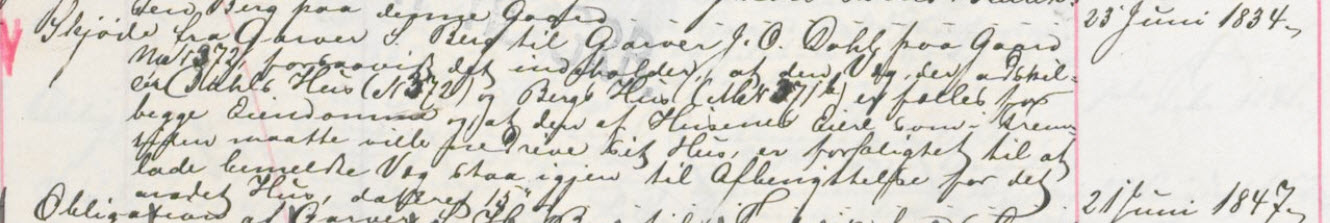 den Berg paa denne Gaard
Skjøde fra Garver S. Berg til Garver J. O. Dahl paa Gaard 25 Juni 1834
No 372, forsaavidt det indeholder, at den Væg, der adskil-
er Dahls Hus (No 372) og Bergs Hus (No 371b) er fælles for
begge Eiendomme og at den af Husenes Eiere som i Frem-
tiden maatte ville nedrive sit Hus, er forpligtet til at
lade bemeldte Væg staa igjen til Afbenyttelse for det
andet Hus, dateret 15
Obligation af Garver 21 Juni 1847